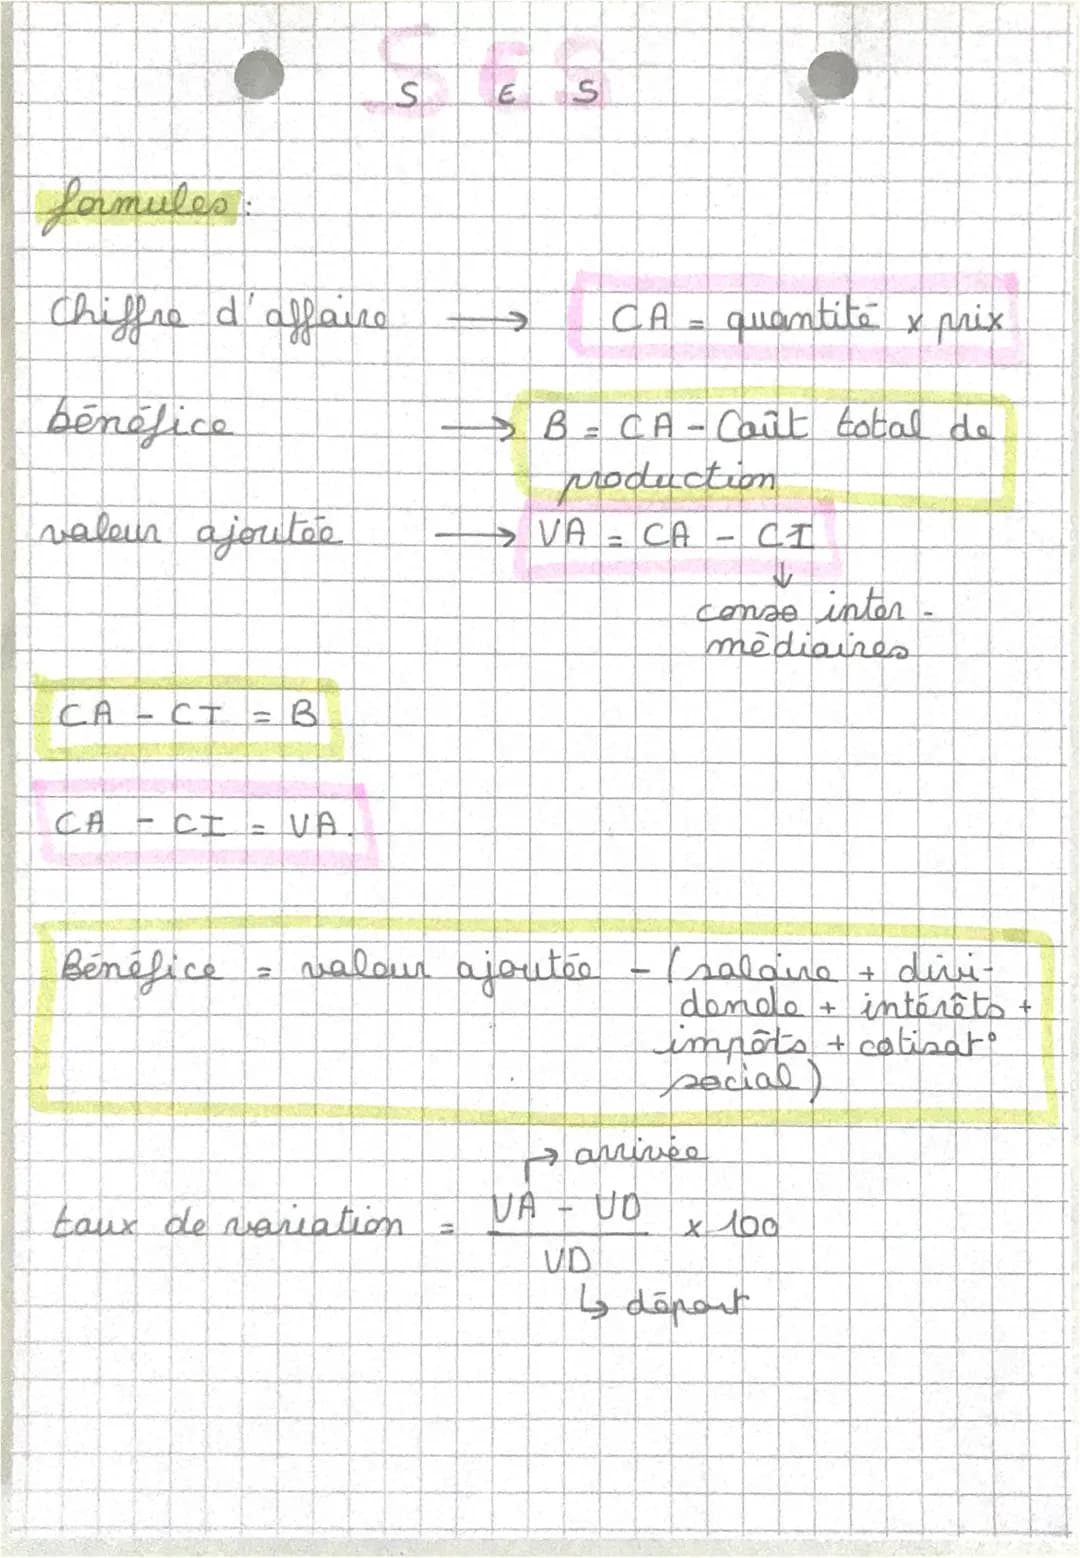 SES
formules :
Chiffre d'affaire → CA = quantité x prix
bénéfice → B = CA - Coût total de
production
valeur ajoutée → VA = CA - CI
↓
conso inter -
médiaires
CA - CT = B
CA - CI = VA.
Bénéfice = valeur ajoutée - (salaire + divi-
dende + intérêts +
impôts + cotisat°
social)
↱ arrivée
taux de variation = VA - VD x 100
VD
↳ départ